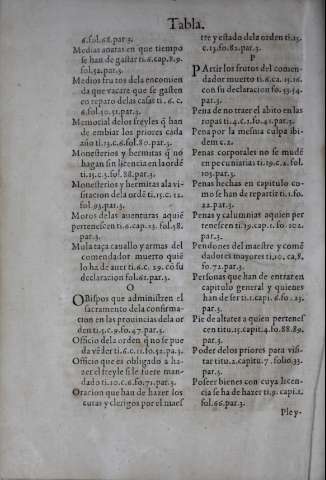 Tabla.
6.fol.68.par.3.
Medias anatas en que tiempo
se han de gastar ti.6.cap.8.9.
fol.52.par.3.
Medios frutos dela encomien
da que vacare que se gasten
en reparo delas casas ti.6. c.
6.fol.50.51.par.3.
Memorial delos freyles q̃ han
de embiar los priores cada
año ti.13.c.6.fol.80.par.3.
Monesterios y hermitas q̃ no
hagan sin licencia en la ordẽ
ti.15.c.3.fol.88.par.3.
Monesterios y hermitas ala vi-
sitacion dela ordẽ ti.15.c.12.
fol.95.par.3.
Moros delas auenturas aquiẽ
pertenescen ti.6.cap.23. fol.58.
par.3.
Mula taça cauallo y armas del
comendador muerto quiẽ
lo ha de auer ti.6.c. 29. co su
declaracion fol.61.par.3.
O
OBispos que administren el
sacramento dela confirma-
cion en las prouincias dela or
den ti.5.c.9.fo.47.par.3.
Officio dela orden q̃ no se pue
da vẽder ti.6.c.11.fo.52.pa.3.
Officio que es obligado a ha-
zer el freyle si le fuere man-
dado ti.10.c.6.fo.71.par.3.
Oracion que han de hazer los
curas y clerigos por el maes
tre y estado dela orden ti.13.
c.13.fo.82.par.3.
P
PArtir los frutos del comen-
dador muerto ti.6.ca.15.16.
con su declaracion fo.53.54.
par.3.
Pena de no traer el abito en las
ropas ti.4.c.1.fo.45.par.3.
Pena por la mesma culpa ibi-
dem c.2.
Penas corporales no se mudẽ
en pecuniarias ti.19.c.2.fol.
103.par.3.
Penas hechas en capitulo co-
mo se han de repartir ti.1.fo.
22.par.3.
Penas y calumnias aquien per
tenescen ti.19.cap.1.fo.102.
par.3.
Pendones del maestre y comẽ
dadores mayores ti.10.ca.8.
fo.72.par.3.
Personas que han de entrar en
capitulo general y quienes
han de ser ti.1.capi.6.fo.23.
par.3.
Pie de altar es a quien pertenes
cen titu.13.capit.4.fo.88.89.
par.3.
Poder delos priores para visi-
tar titu.2.capitu.7.folio.33.
par.3.
Poseer bienes con cuya licen-
cia se ha de hazer ti.9.capi.1.
fol.66.par.3.
Pley-